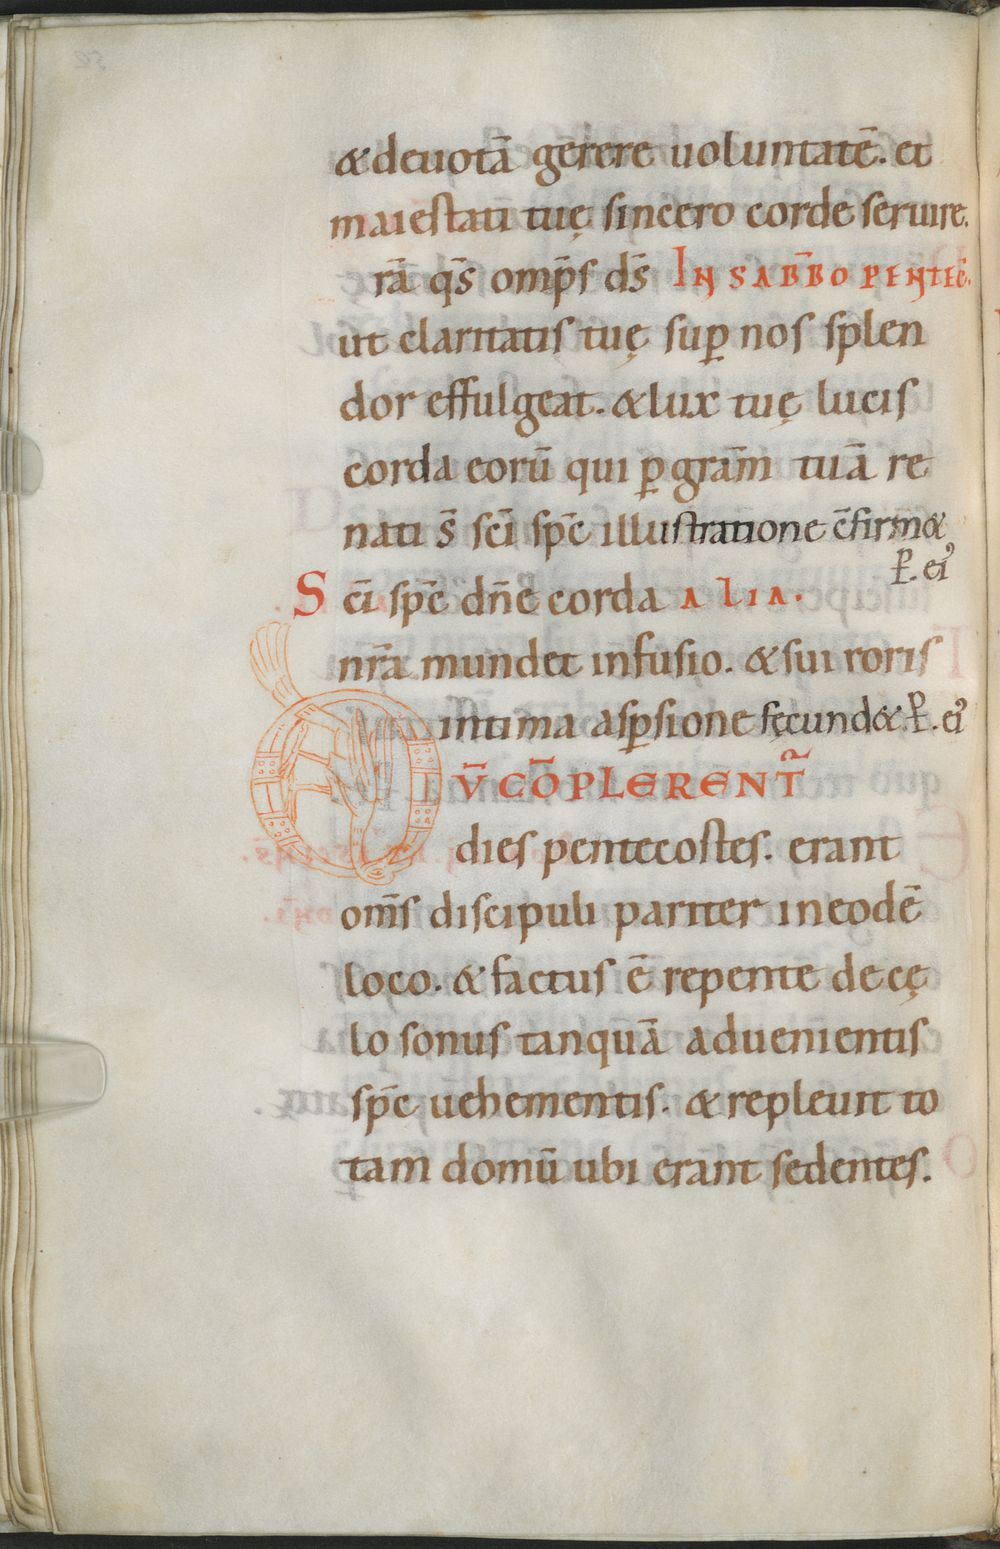 &deuotā gerere uoluntatē. et
maiestati tuę sincero corde seruire.
rā qs̄ omp̄s ds̄ IN SABB̄O PENTEC̄.
ut claritatis tuę suꝑ nos splen
dor effulgeat. &lux tuę lucis
corda eorū qui ꝑ gram̄ tuā re
nati s̄ sci̅ sp̄c illustratione c̄firm&
P̱. ei᾽
S ci̅ sp̄c dn̄e corda ALIA.
nr̄a mundet infusio. &sui roris
intima asꝑsione fęcund&. P̱. ei᾽
V̄ CŌPLERENT᷑
dies pentecostes. erant
om̄s discipuli pariter ineodē
loco. & factus ē repente de cę
lo sonus tanquā aduenientis
sp̄c uehementis. & repleuit to
tam domū ubi erant sedentes.